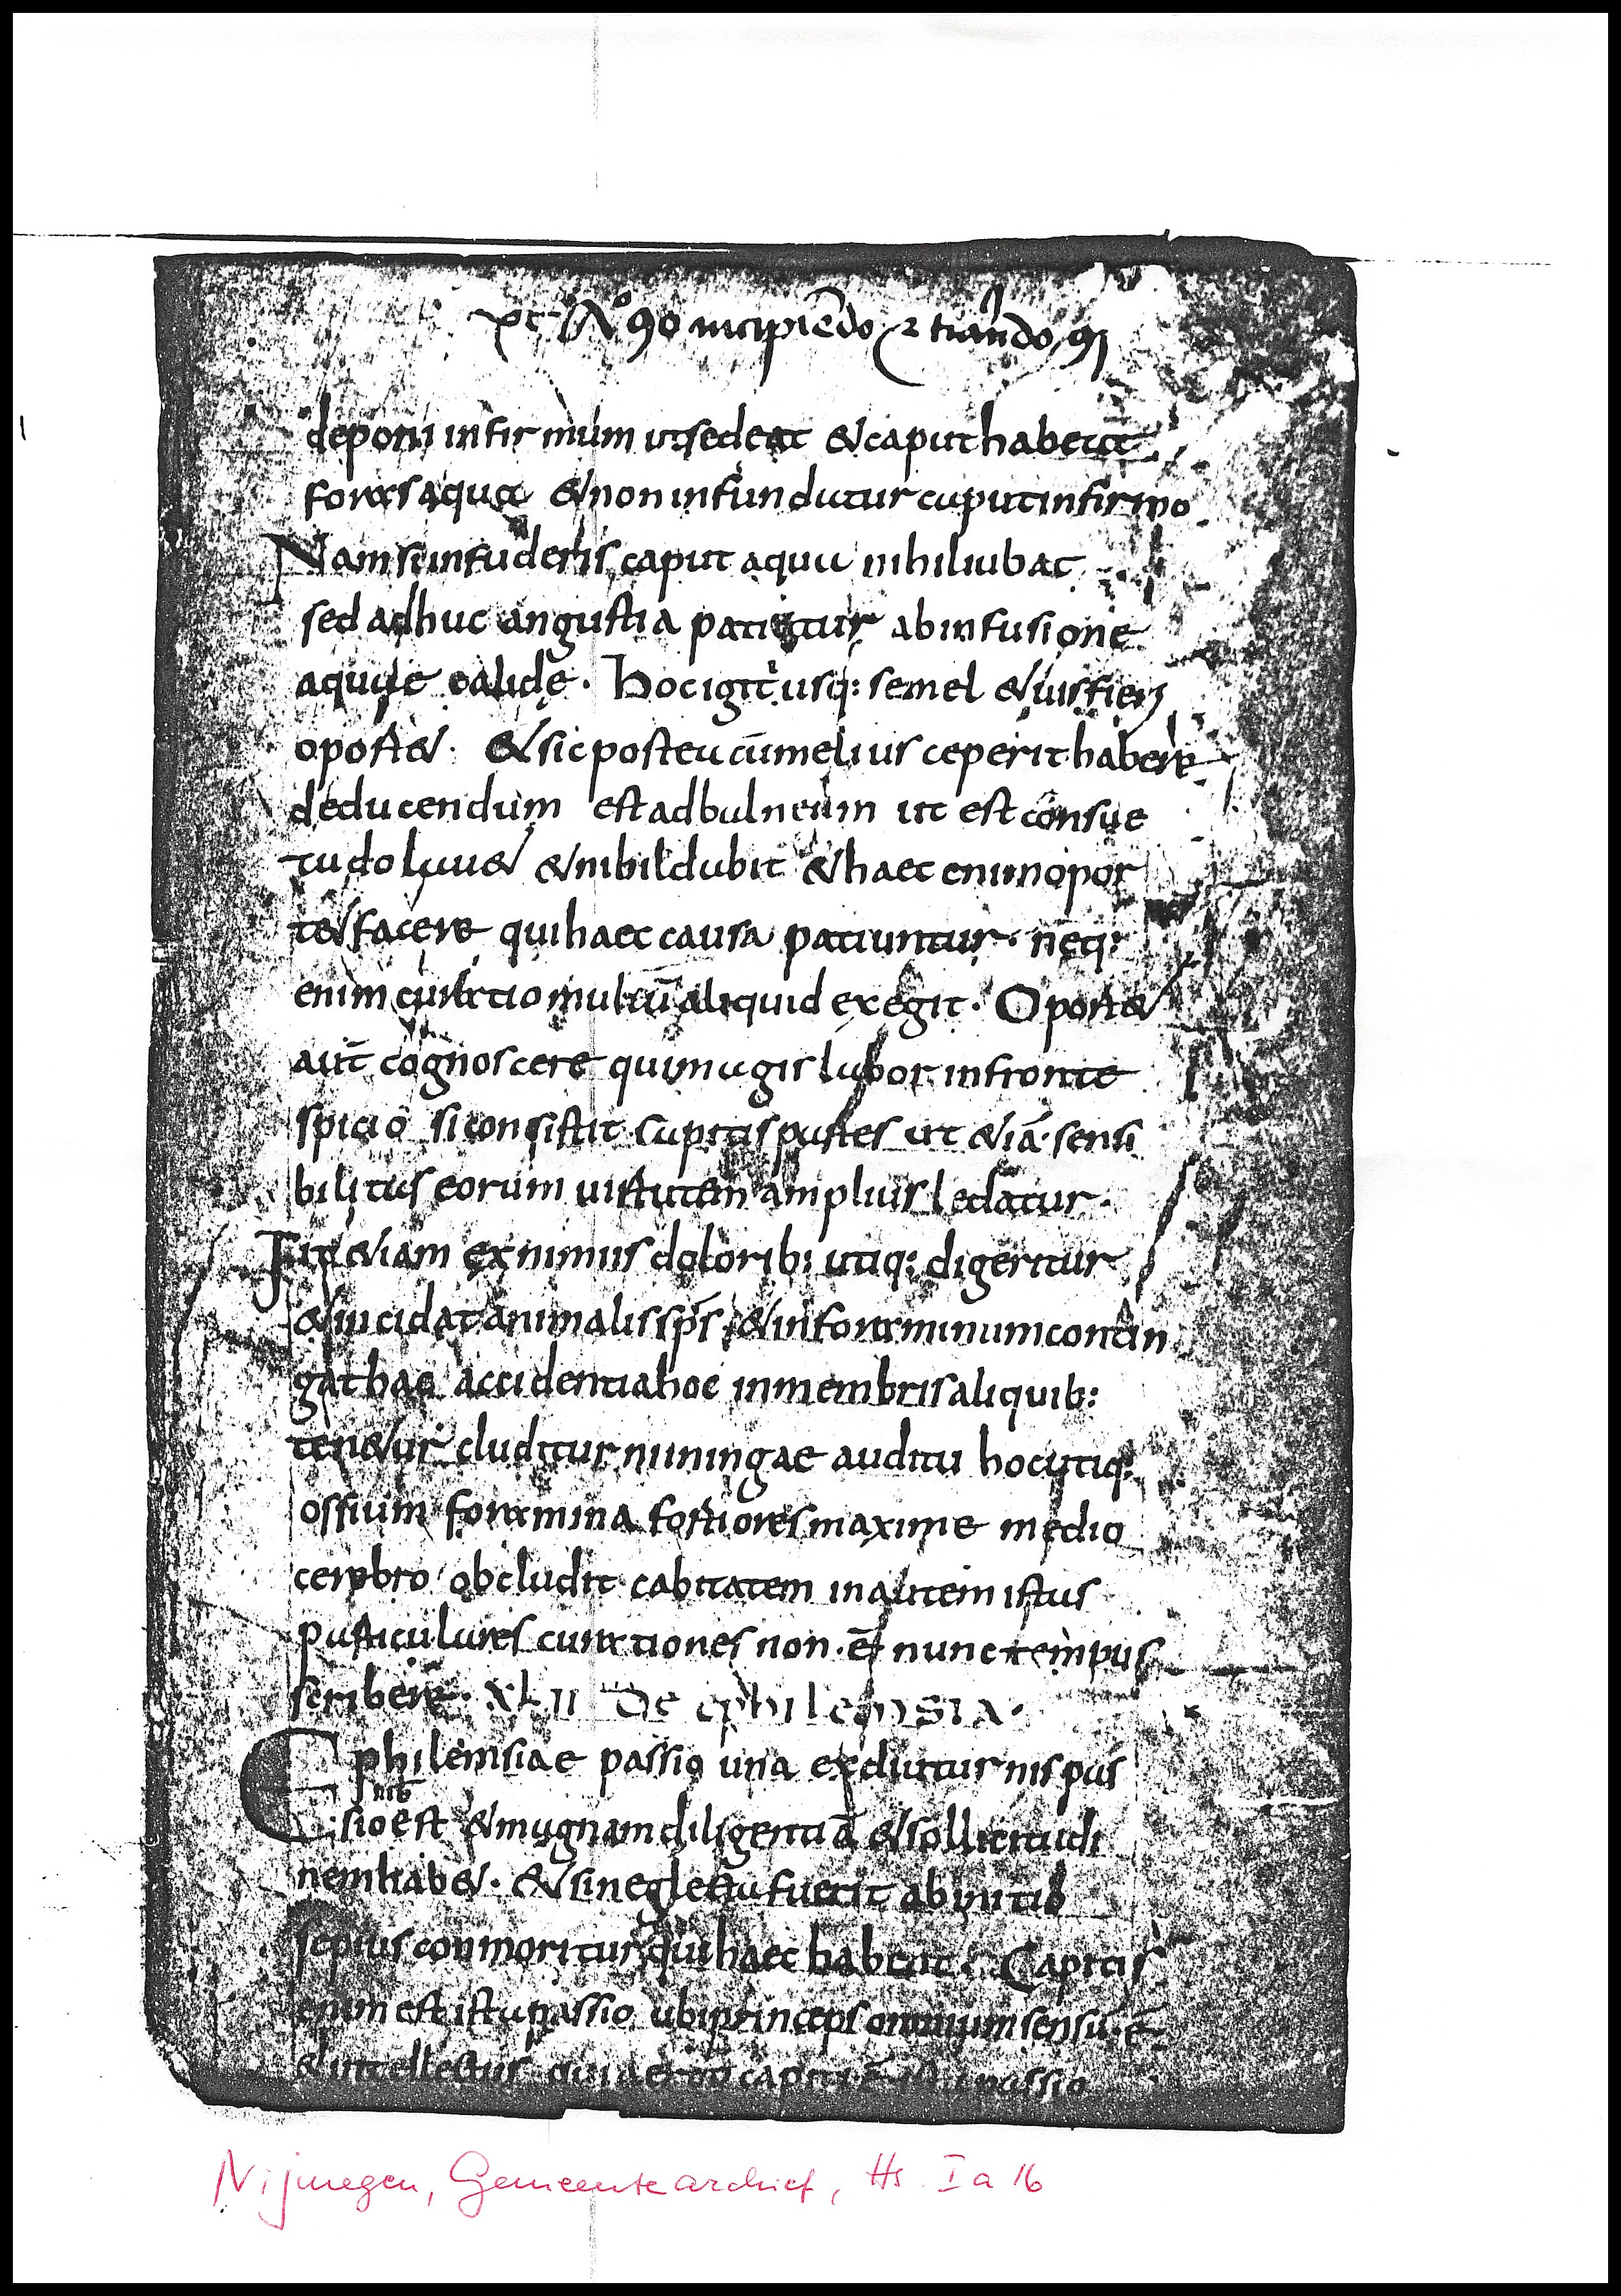 A° 90 incipiēdo & t'iando 91
deponi infirmum ut sedeat & caput habeat
foras aqua & non infundatur caput infirmo
Nam si infuderis caput aqua nihil iubat
sed adhuc angustia patietur ab infusione
aquae calide · hoc igit usq: semel & uis fieri
oport& · & sic postea cū melius ceperit habere
deducendum est ad balneum ut est consue
tudo laua& & nihil dubit & haec enim opor
t& facere qui haec causa patiuntur · neq:
enim curatio multū aliquid exegit · Oport&
aut cognoscere qui magis labor in fronte
spicio si consistit capitis partes ut &iā · sensi
bilitas eorum uirtutem amplius ledatur ·
Fit &iam ex nimiis dolorib: utiq: digeritur
& incidat animalis sp̄s · & in foraminum contin
gat hae accidentia hoc in membris aliquib:
ten&ur cluditur miningae auditu hoc utiq:
ossium foramina fortiores maxime medio
cerebro obcludit cabitatem in autem istas
particulares curationes non · ē nunc tempus
scribere · XLII De ephilempsia ·
Ephilemsiae passio una ex diutur nis pas
sio est & magnam diligentiā & sollicitudi
nem hab& · & si neglecta fuerit ab initio
sepius conmoritur qui haec habent · Capitis
enim est ista passio ubi princeps omnium sensu · ē
& intellectus quia ergo capiti passio
Nijmegen, Gemeentearchief, Hs I a 16